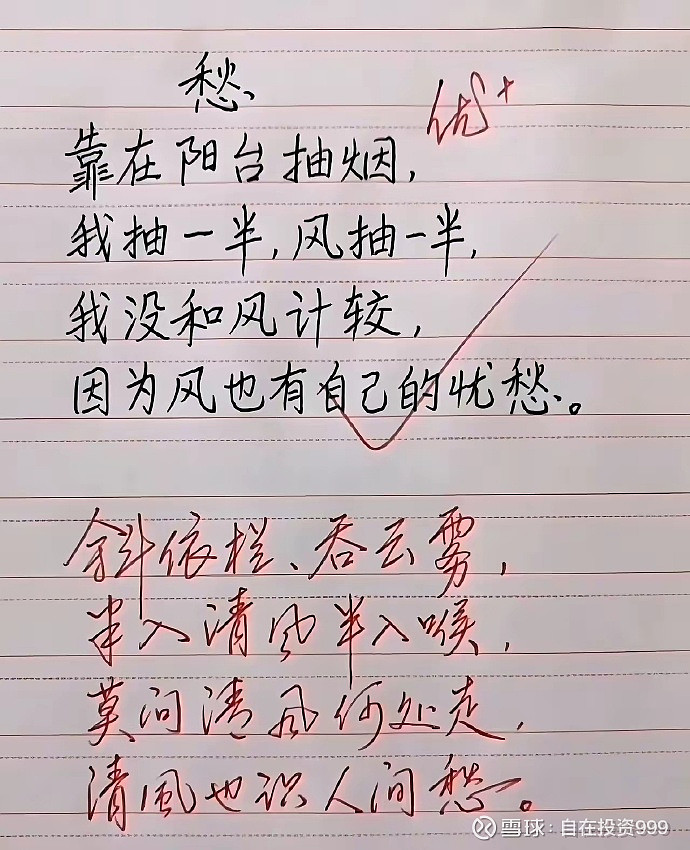 愁
优+
靠在阳台抽烟,
我抽一半,风抽一半,
我没和风计较,
因为风也有自己的忧愁。
斜依栏、吞云雾,
半入清风半入喉,
莫问清风何处走,
清風也识人间愁。
雪球:自在投资999